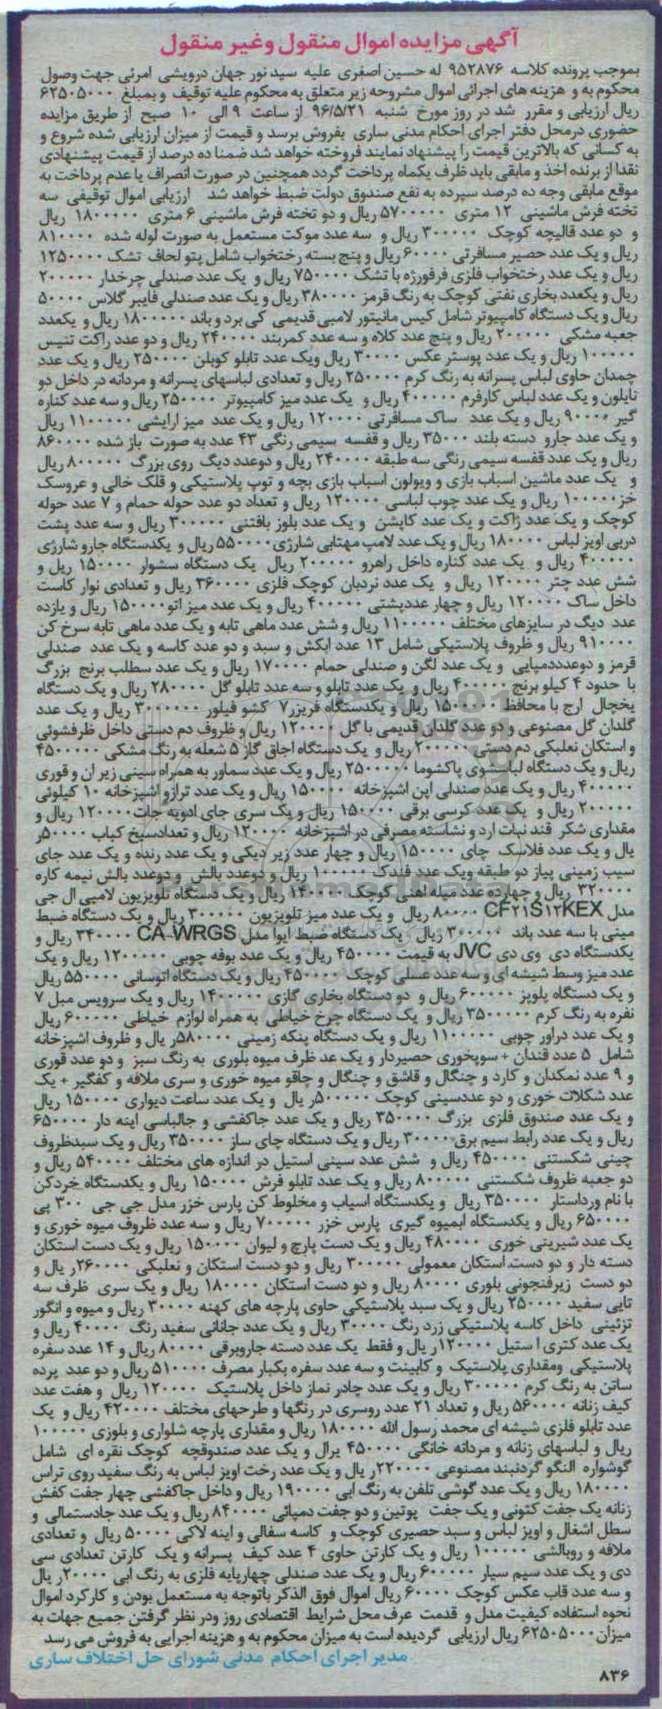 آگهی مزایده اموال منقول وغیر منقول
بموجب پرونده کلاسه ۹۵۲۸۷۶ له حسین اصغری علیه سید نور جهان درویشی امرئی جهت وصول
محکوم به و هزینه های اجرائی اموال مشروحه زیر متعلق به محکوم علیه توقیف وبمبلغ ۶۲۵۰۵۰۰۰
ریال ارزیابی و مقرر شد در روز مورخ شنبه ۹۶/۵/۲۱ از ساعت ۹ الی ۱۰ صبح از طریق مزایده
حضوری درمحل دفتر اجرای احکام مدنی ساری بفروش برسد و قیمت از میزان ارزیابی شده شروع و
به کسانی که بالاترین قیمت را پیشنهاد نمایند فروخته خواهد شد ضمنا ده درصد از قیمت پیشنهادی
نقدا از برنده اخذ و مابقی باید ظرف یکماه پرداخت گردد همچنین در صورت انصراف یا عدم پرداخت به
موقع مابقی وجه ده درصد سپرده به نفع صندوق دولت ضبط خواهد شد ارزیابی اموال توقیفی سه
تخته فرش ماشینی ۱۲ متری ۵۷۰۰۰۰۰ ریال و دو تخته فرش ماشینی ۶ متری ۱۸۰۰۰۰۰ ریال
و دو عدد قالیچه کوچک ۳۰۰۰۰۰ ریال و سه عدد موکت مستعمل به صورت لوله شده ۸۱۰۰۰۰
ریال و یک عدد حصیر مسافرتی ۶۰۰۰۰ ریال و پنج بسته رختخواب شامل پتو لحاف تشک ۱۲۵۰۰۰۰
ریال و یک عدد رختخواب فلزی فرفورژه با تشک ۷۵۰۰۰۰ ریال و یک عدد صندلی چرخدار ۲۰۰۰۰۰
ریال و یکعدد بخاری نفتی کوچک به رنگ قرمز ۳۸۰۰۰۰ ریال و یک عدد صندلی فایبر گلاس ۵۰۰۰۰
ریال و یک دستگاه کامپیوتر شامل کیس مانیتور لامپی قدیمی کی برد و باند ۱۸۰۰۰۰۰ ریال و یکعدد
جعبه مشکی ۲۰۰۰۰۰ ریال و پنج عدد کلاه و سه عدد کمربند ۲۴۰۰۰۰ ریال و دو عدد راکت تنیس
۱۰۰۰۰۰ ریال و یک عدد پوستر عکس ۳۰۰۰۰ ریال ویک عدد تابلو کوبلن ۲۵۰۰۰۰ ریال و یک عدد
چمدان حاوی لباس پسرانه به رنگ کرم ۲۵۰۰۰۰ ریال و تعدادی لباسهای پسرانه و مردانه در داخل دو
نایلون و یک عدد لباس کارفرم ۴۰۰۰۰۰ ریال و یک عدد میز کامپیوتر ۲۵۰۰۰۰ ریال و سه عدد کناره
گیر ۹۰۰۰۰ ریال و یک عدد ساک مسافرتی ۱۲۰۰۰۰ ریال و یک عدد میز آرایشی ۱۱۰۰۰۰۰ ریال
و یک عدد جارو دسته بلند ۳۵۰۰۰ ریال و قفسه سیمی رنگی ۴۳ عدد به صورت باز شده ۸۶۰۰۰۰
ریال و یک عدد قفسه سیمی رنگی سه طبقه ۲۴۰۰۰۰ ریال و دوعدد دیگ روی بزرگ ۸۰۰۰۰۰ ریال
و یک عدد ماشین اسباب بازی و ویولون اسباب بازی بچه و توپ پلاستیکی و قلک خالی و عروسک
خز ۱۰۰۰۰۰ ریال و یک عدد چوب لباسی ۱۲۰۰۰۰ ریال و تعداد دو عدد حوله حمام و ۷ عدد حوله
کوچک و یک عدد ژاکت و یک عدد کاپشن و یک عدد بلوز بافتنی ۳۰۰۰۰۰ ریال و سه عدد پشت
دربی اویز لباس ۱۸۰۰۰۰ ریال و یک عدد لامپ مهتابی شارژی ۵۵۰۰۰۰ ریال و یکدستگاه جارو شارژی
۴۰۰۰۰۰ ریال و یک عدد کناره داخل راهرو ۲۰۰۰۰۰ ریال یک دستگاه سشوار ۱۵۰۰۰۰ ریل و
شش عدد چتر ۱۲۰۰۰۰ ریال و یک عدد نردبان کوچک فلزی ۳۶۰۰۰۰ ریال و تعدادی نوار کاست
داخل ساک ۱۲۰۰۰۰ ریال و چهار عددپشتی ۴۰۰۰۰۰ ریال و یک عدد میز اتو ۱۵۰۰۰۰ ریال و یازده
عدد دیگ در سایزهای مختلف ۱۱۰۰۰۰۰ ریال و شش عدد ماهی تابه و یک عدد ماهی تابه سرخ کن
۹۱۰۰۰۰ ریال و ظروف پلاستیکی شامل ۱۳ عدد ابکش و سبد و دو عدد کاسه و یک عدد صندلی
قرمز و دوعدددمپایی و یک عدد لگن و صندلی حمام ۱۷۰۰۰۰ ریال و یک عدد سطلب برنج بزرگ
با حدود ۴ کیلو برنج ۴۰۰۰۰۰ ریال و یک عدد تابلو و سه عدد تابلو گل ۲۸۰۰۰۰ ریال و یک دستگاه
یخچال ارج با محافظ ۱۵۰۰۰۰۰ ریال و یکدستگاه فریزر ۷ کشو فیلور ۳۰۰۰۰۰۰ ریال و یک عدد
گلدان گل مصنوعی و دو عدد گلدان قدیمی با گل ۱۲۰۰۰۰ ریال و ظروف دم دستی داخل ظرفشوئی
و استکان نعلبکی دم دستی ۲۰۰۰۰۰ ریال و یک دستگاه اجاق گاز ۵ شعله به رنگ مشکی ۴۵۰۰۰۰۰
ریال و یک دستگاه لباسشوی پاکشوما ۲۵۰۰۰۰۰ ریال و یک عدد سماور به همراه سینی زیر ان و قوری
۴۰۰۰۰۰ ریال و یک عدد صندلی اپن اشپزخانه ۱۵۰۰۰۰ ریال و یک عدد ترازو اشپزخانه ۱۰ کیلوئی
۲۰۰۰۰۰ ریال و یک عدد کرسی برقی ۱۵۰۰۰۰ ریال و یک سری جای ادویه جات ۱۲۰۰۰۰ ریال و
مقداری شکر قند نبات ارد و نشاسته مصرفی در اشپزخانه ۱۲۰۰۰۰ ریال و تعدادسیخ کباب ۵۰۰۰۰ر
یال و یک عدد فلاسک چای ۱۵۰۰۰۰ ریال و چهار عدد زیر دیگی و یک عدد رنده و یک عدد جای
سیب زمینی پیاز دو طبقه ویک عدد فندک ۱۰۰۰۰۰ ریال و دوعدد بالش و دوعدد بالش نیمه کاره
۳۲۰۰۰۰ ریال و چهارده عدد میله اهنی کوچک ۱۴۰۰۰۰ ریال و یک دستگاه تلویزیون لامپی ال جی
مدل CF۲۱S۱۲KEX ۸۰۰۰۰۰ ریال و یک عدد میز تلویزیون ۳۰۰۰۰۰ ریال و یک دستگاه ضبط
مینی با سه عدد باند ۳۰۰۰۰۰ ریال و یک دستگاه ضبط ایوا مدل CA-WRGS ۳۴۰۰۰۰ ریال و
یکدستگاه دی وی دی JVC به قیمت ۴۵۰۰۰۰ ریال و یک عدد بوفه چوبی ۱۲۰۰۰۰۰ ریال و یک
عدد میز وسط شیشه ای و سه عدد عسلی کوچک ۴۵۰۰۰۰ ریال و یک دستگاه اتوسانی ۵۵۰۰۰۰ ریال
و یک دستگاه پلوپز ۶۰۰۰۰۰ ریال و دو دستگاه بخاری گازی ۱۴۰۰۰۰۰ ریال و یک سرویس مبل ۷
نفره به رنگ کرم ۳۵۰۰۰۰۰ ریال و یک دستگاه چرخ خیاطی به همراه لوازم خیاطی ۶۰۰۰۰۰ ریال
و یک عدد دراور چوبی ۱۱۰۰۰۰۰ ریال و یک دستگاه پنکه زمینی ۵۸۰۰۰۰ریال و ظروف اشپزخانه
شامل ۵ عدد قندان + سوپخوری حصیردار و یک عد ظرف میوه بلوری به رنگ سبز و دو عدد قوری
و ۹ عدد نمکدان و کارد و چنگال و قاشق و چنگال و چاقو میوه خوری و سری ملاقه و کفگیر + یک
عدد شکلات خوری و دو عددسینی کوچک ۵۰۰۰۰۰ریال و یک عدد ساعت دیواری ۱۵۰۰۰۰ ریال
و یک عدد صندوق فلزی بزرگ ۳۵۰۰۰۰ ریال و یک عدد جاکفشی و جالباسی اینه دار ۶۵۰۰۰۰
ریال و یک عدد رابط سیم برق ۳۰۰۰۰ ریال و یک دستگاه چای ساز ۳۵۰۰۰۰ ریال و یک سبدظروف
چینی شکستنی ۴۵۰۰۰۰ ریال و شش عدد سینی استیل در اندازه های مختلف ۵۴۰۰۰۰ ریال و
دو جعبه ظروف شکستنی ۸۰۰۰۰۰ ریال و یک عدد تابلو فرش ۱۵۰۰۰۰ ریال و یکدستگاه خردکن
با نام ورداستار ۳۵۰۰۰۰ ریال و یکدستگاه اسیاب و مخلوط کن پارس خزر مدل جی جی ۳۰۰ پی
۶۵۰۰۰۰ ریال و یکدستگاه ابمیوه گیری پارس خزر ۷۰۰۰۰۰ ریال و سه عدد ظروف میوه خوری و
یک عدد شیرینی خوری ۴۸۰۰۰۰ ریال و یک دست پارچ و لیوان ۱۵۰۰۰۰ ریال و یک دست استکان
دسته دار و دو دست استکان معمولی ۳۰۰۰۰۰ ریال و دو دست استکان و نعلبکی ۲۶۰۰۰۰ر یال و
دو دست زیرفنجونی بلوری ۸۰۰۰۰ ریال و دو دست استکان ۱۸۰۰۰۰ ریال و یک سری ظرف سه
تایی سفید ۲۵۰۰۰۰ ریال و یک سبد پلاستیکی حاوی پارچه های کهنه ۳۰۰۰۰ ریال و میوه و انگور
تزئینی داخل کاسه پلاستیکی زرد رنگ ۳۰۰۰۰ ریال و یک عدد جانانی سفید رنگ ۴۰۰۰۰ ریال و
یک عدد کتری استیل ۱۲۰۰۰۰ریال و فقط یک عدد دسته جاروبرقی ۸۰۰۰۰ ریال و ۱۴ عدد سفره
پلاستیکی ومقداری پلاستیک و کابینت و سه عدد سفره یکبار مصرف ۵۱۰۰۰۰ ریال و دو عدد پرده
ساتن به رنگ کرم ۳۰۰۰۰۰ ریال و یک عدد چادر نماز داخل پلاستیک ۱۲۰۰۰۰ ریال و هفت عدد
کیف زنانه ۵۶۰۰۰۰ ریال و تعداد ۲۱ عدد روسری در رنگها و طرحهای مختلف ۴۲۰۰۰۰ ریال و یک
عدد تابلو فلزی شیشه ای محمد رسول الله ۱۸۰۰۰۰ ریال و مقداری پارچه شلواری و بلوزی ۱۰۰۰۰۰
ریال و لباسهای زنانه و مردانه خانگی ۴۵۰۰۰۰ یرال و یک عدد صندوقچه کوچک نقره ای شامل
گوشواره النگو گردنبند مصنوعی ۲۲۰۰۰۰ر یال و یک عدد رخت اویز لباس به رنگ سفید روی تراس
۱۸۰۰۰۰ ریال و یک عدد گوشی تلفن به رنگ ابی ۱۹۰۰۰۰ ریال و داخل جاکفشی چهار جفت کفش
زنانه یک جفت کتونی و یک جفت پوتین و دو جفت دمپائی ۸۴۰۰۰۰ ریال و یک عدد جادستمالی و
سطل اشغال و اویز لباس و سبد حصیری کوچک و کاسه سفالی و اینه لاکی ۵۰۰۰۰ ریال و تعدادی
ملافه و روبالشی ۱۰۰۰۰۰ ریال و یک کارتن حاوی ۴ عدد کیف پسرانه و یک کارتن تعدادی سی
دی و یک عدد سیم سیار ۶۰۰۰۰۰ ریال و یک عدد صندلی چهارپایه فلزی به رنگ ابی ۲۰۰۰۰ر یال
و سه عدد قاب عکس کوچک ۶۰۰۰۰ ریال اموال فوق الذکر باتوجه به مستعمل بودن و کارکرد اموال
نحوه استفاده کیفیت مدل و قدمت عرف محل شرایط اقتصادی روز ودر نظر گرفتن جمیع جهات به
میزان ۶۲۵۰۵۰۰۰ ریال ارزیابی گردیده است به میزان محکوم به و هزینه اجرایی به فروش می رسد
مدیر اجرای احکام مدنی شورای حل اختلاف ساری
۸۳۶